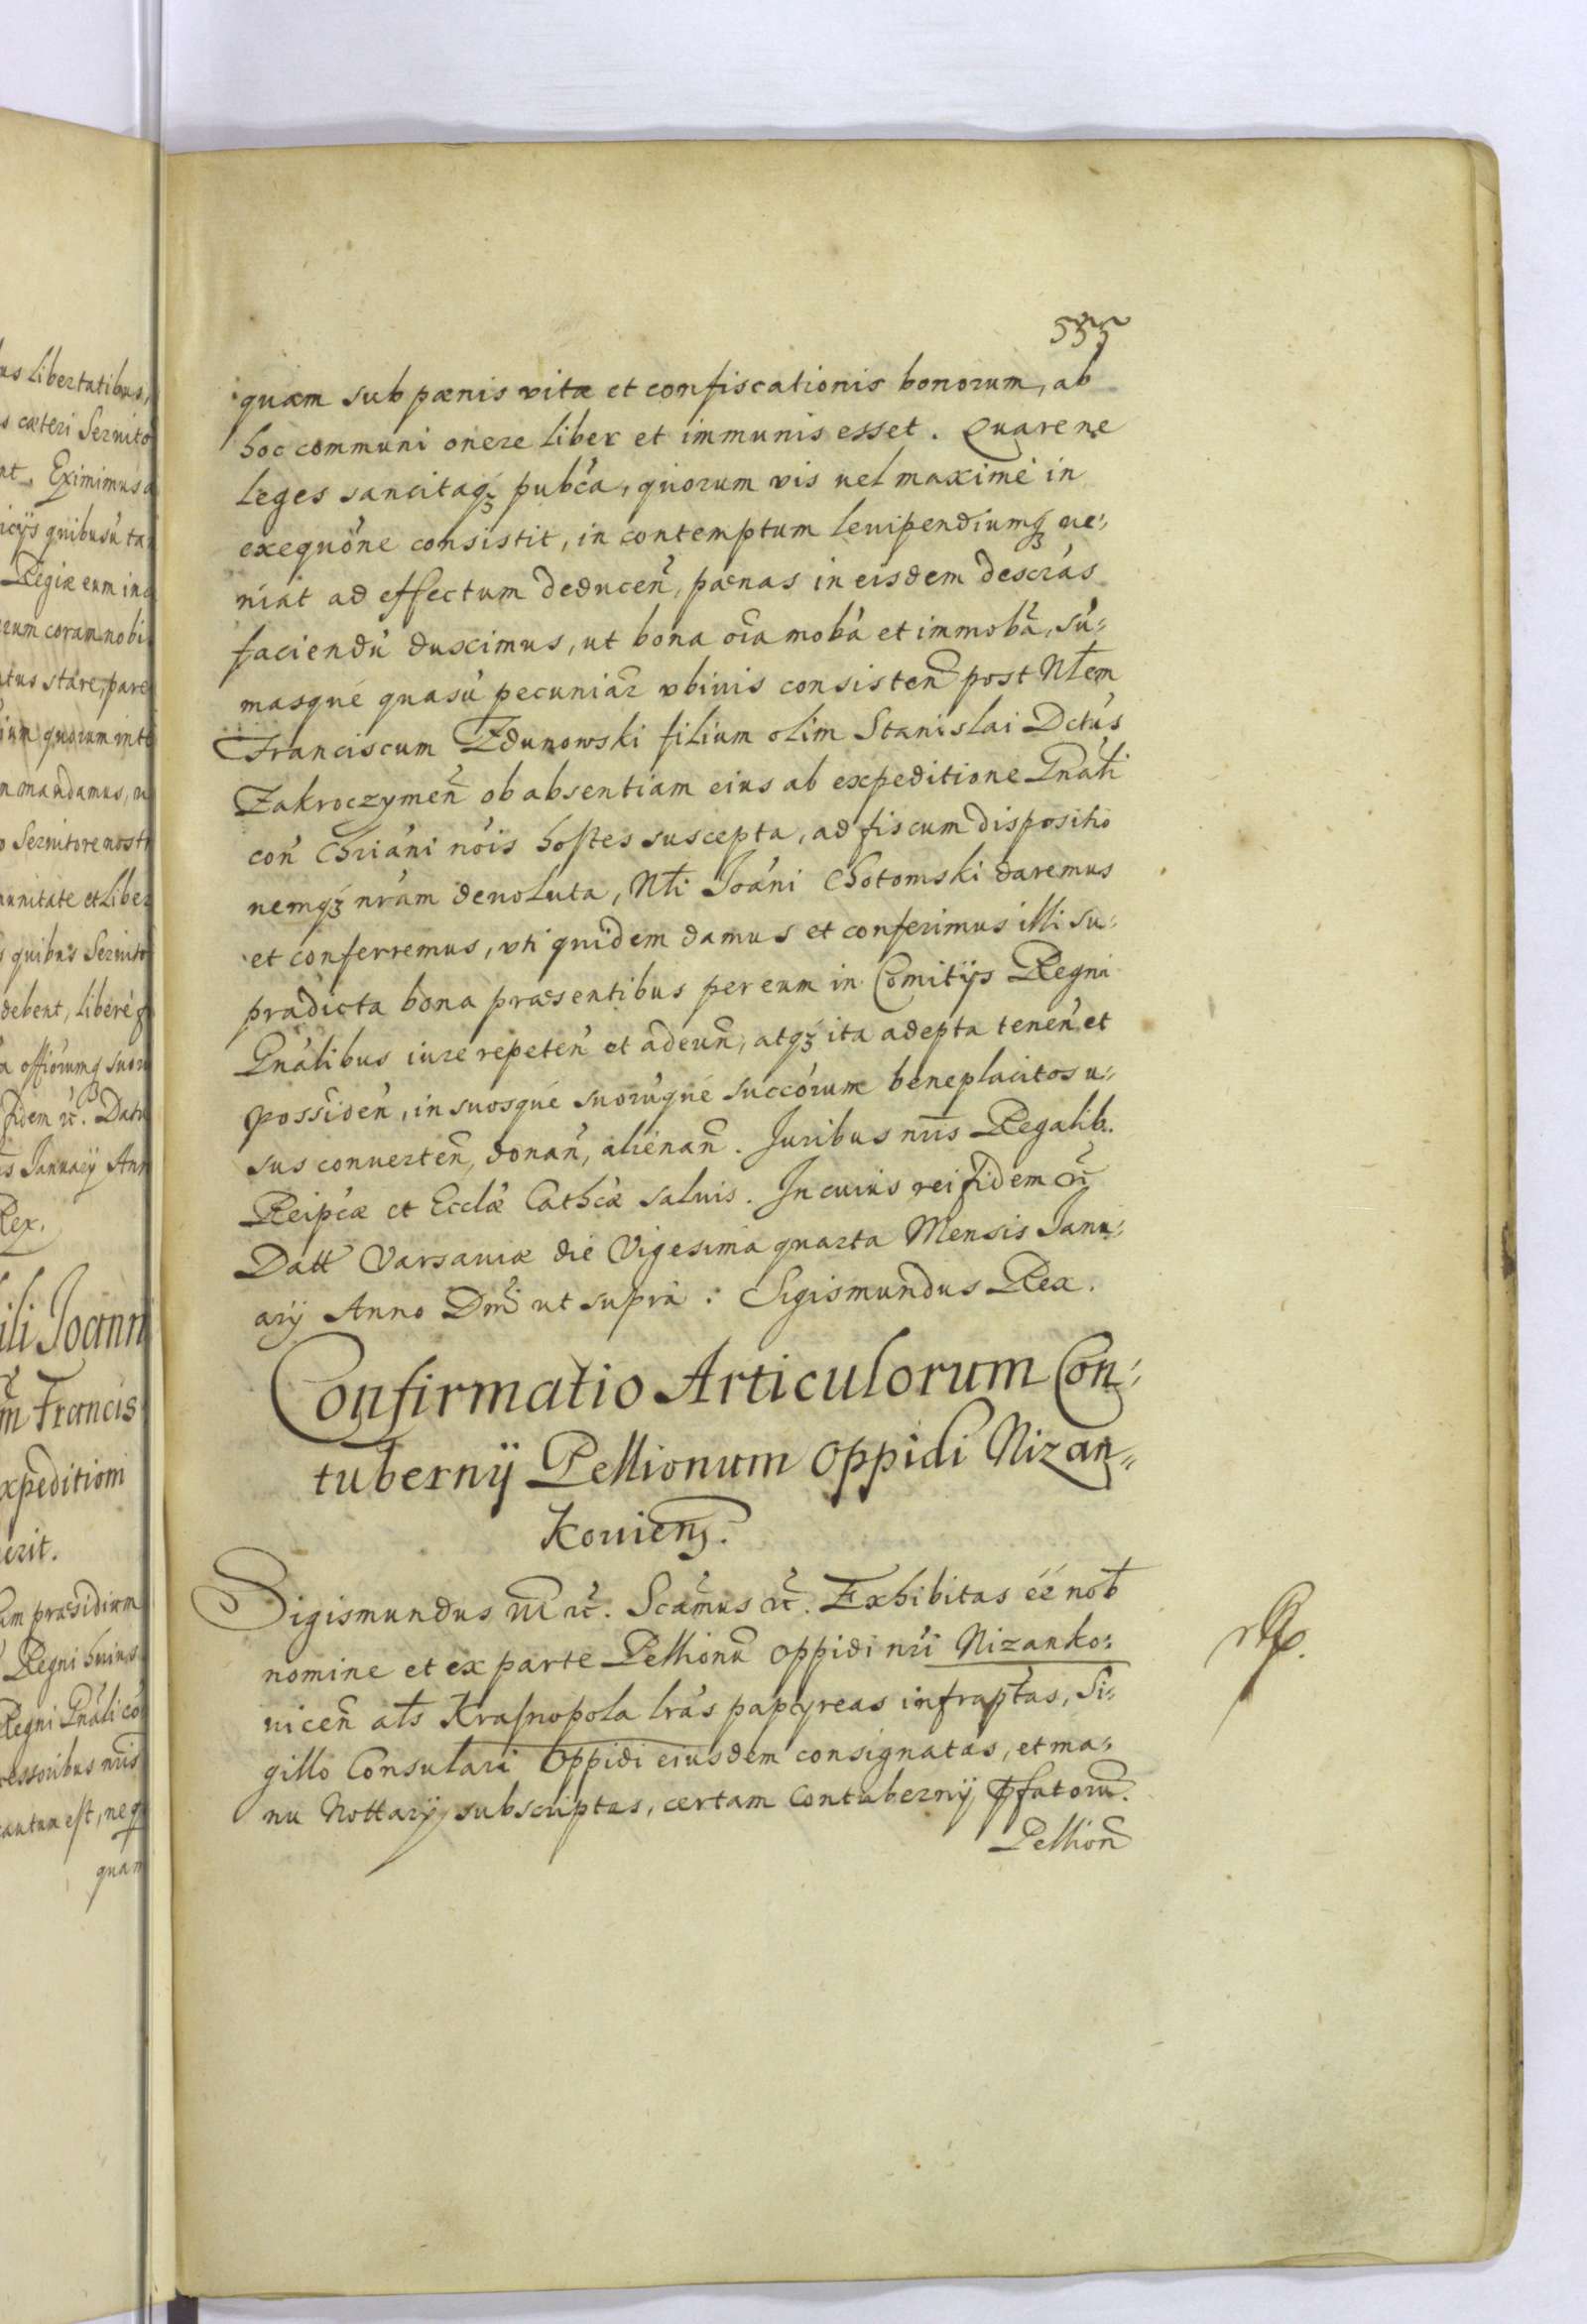 535
quam sub pænis vitæ et confiscationis bonorum, ab
hoc communi onere liber et immunis esset. Quare ne
leges sancitaqȝ pubca, quorum vis vel maximè in
exequōne consistit, in contemptum levipendiumqȝ ve-
niat ad effectum deducen̄, pænas in eisdem descras
faciendū duximus, ut bona oīa mobā et immobā, sū-
masquè quasū pecuniar ubivis consisten̄ post Nłem
Franciscum Zdunowski filium olim Stanislai Dctus
Zakroczymen̄ ob absentiam eius ab expeditione Gnāli
con̄ Chriāni nōis hostes suscepta, ad fiscum dispositio
nemqȝ nram devoluta, Nłi Joāni Chotomski daremus
et conferremus, uti quidem damus et conferimus illi su-
pradicta bona præsentibus per eum in Comitijs Regni
Gnālibus iure repeten̄ et adeun̄, atqȝ ita adepta tenen̄ et
possiden̄, in suosquè suorūquè succorum beneplacitos u-
sus converten̄, donan̄, alienan̄. Juribus nris Regalib.
Reipcæ et Ecclæ Cathcæ salvis. In cuius rei fidem etc̄
Datt Varsaviæ die Vigesima quarta Mensis Janu-
arij Anno Dnī ut supra: Sigismundus Rex.
Confirmatio Articulorum Con-
tubernij Pellionum Oppidi Nizan-
koviens.
Sigismundus III etc̄. Scāmus etc̄. Exhibitas éé nob
nomine et ex parte Pellionū Oppidi nri Nizanko-
vicen̄ ałs Krasnopola lrās papyreas infraptas, Si-
gillo Consulari Oppidi eiusdem consignatas, et ma-
nu Nottarij subscriptas, certam Contubernij pfatorū.
Pellion̄